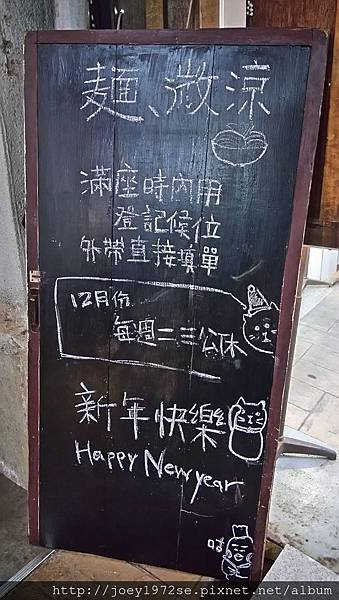 麵、微涼
滿座時內用
登記候位
外帶直接填單
12月份
每週二三公休
新年快樂
Happy New year
http://joey1972se.pixnet.net/album